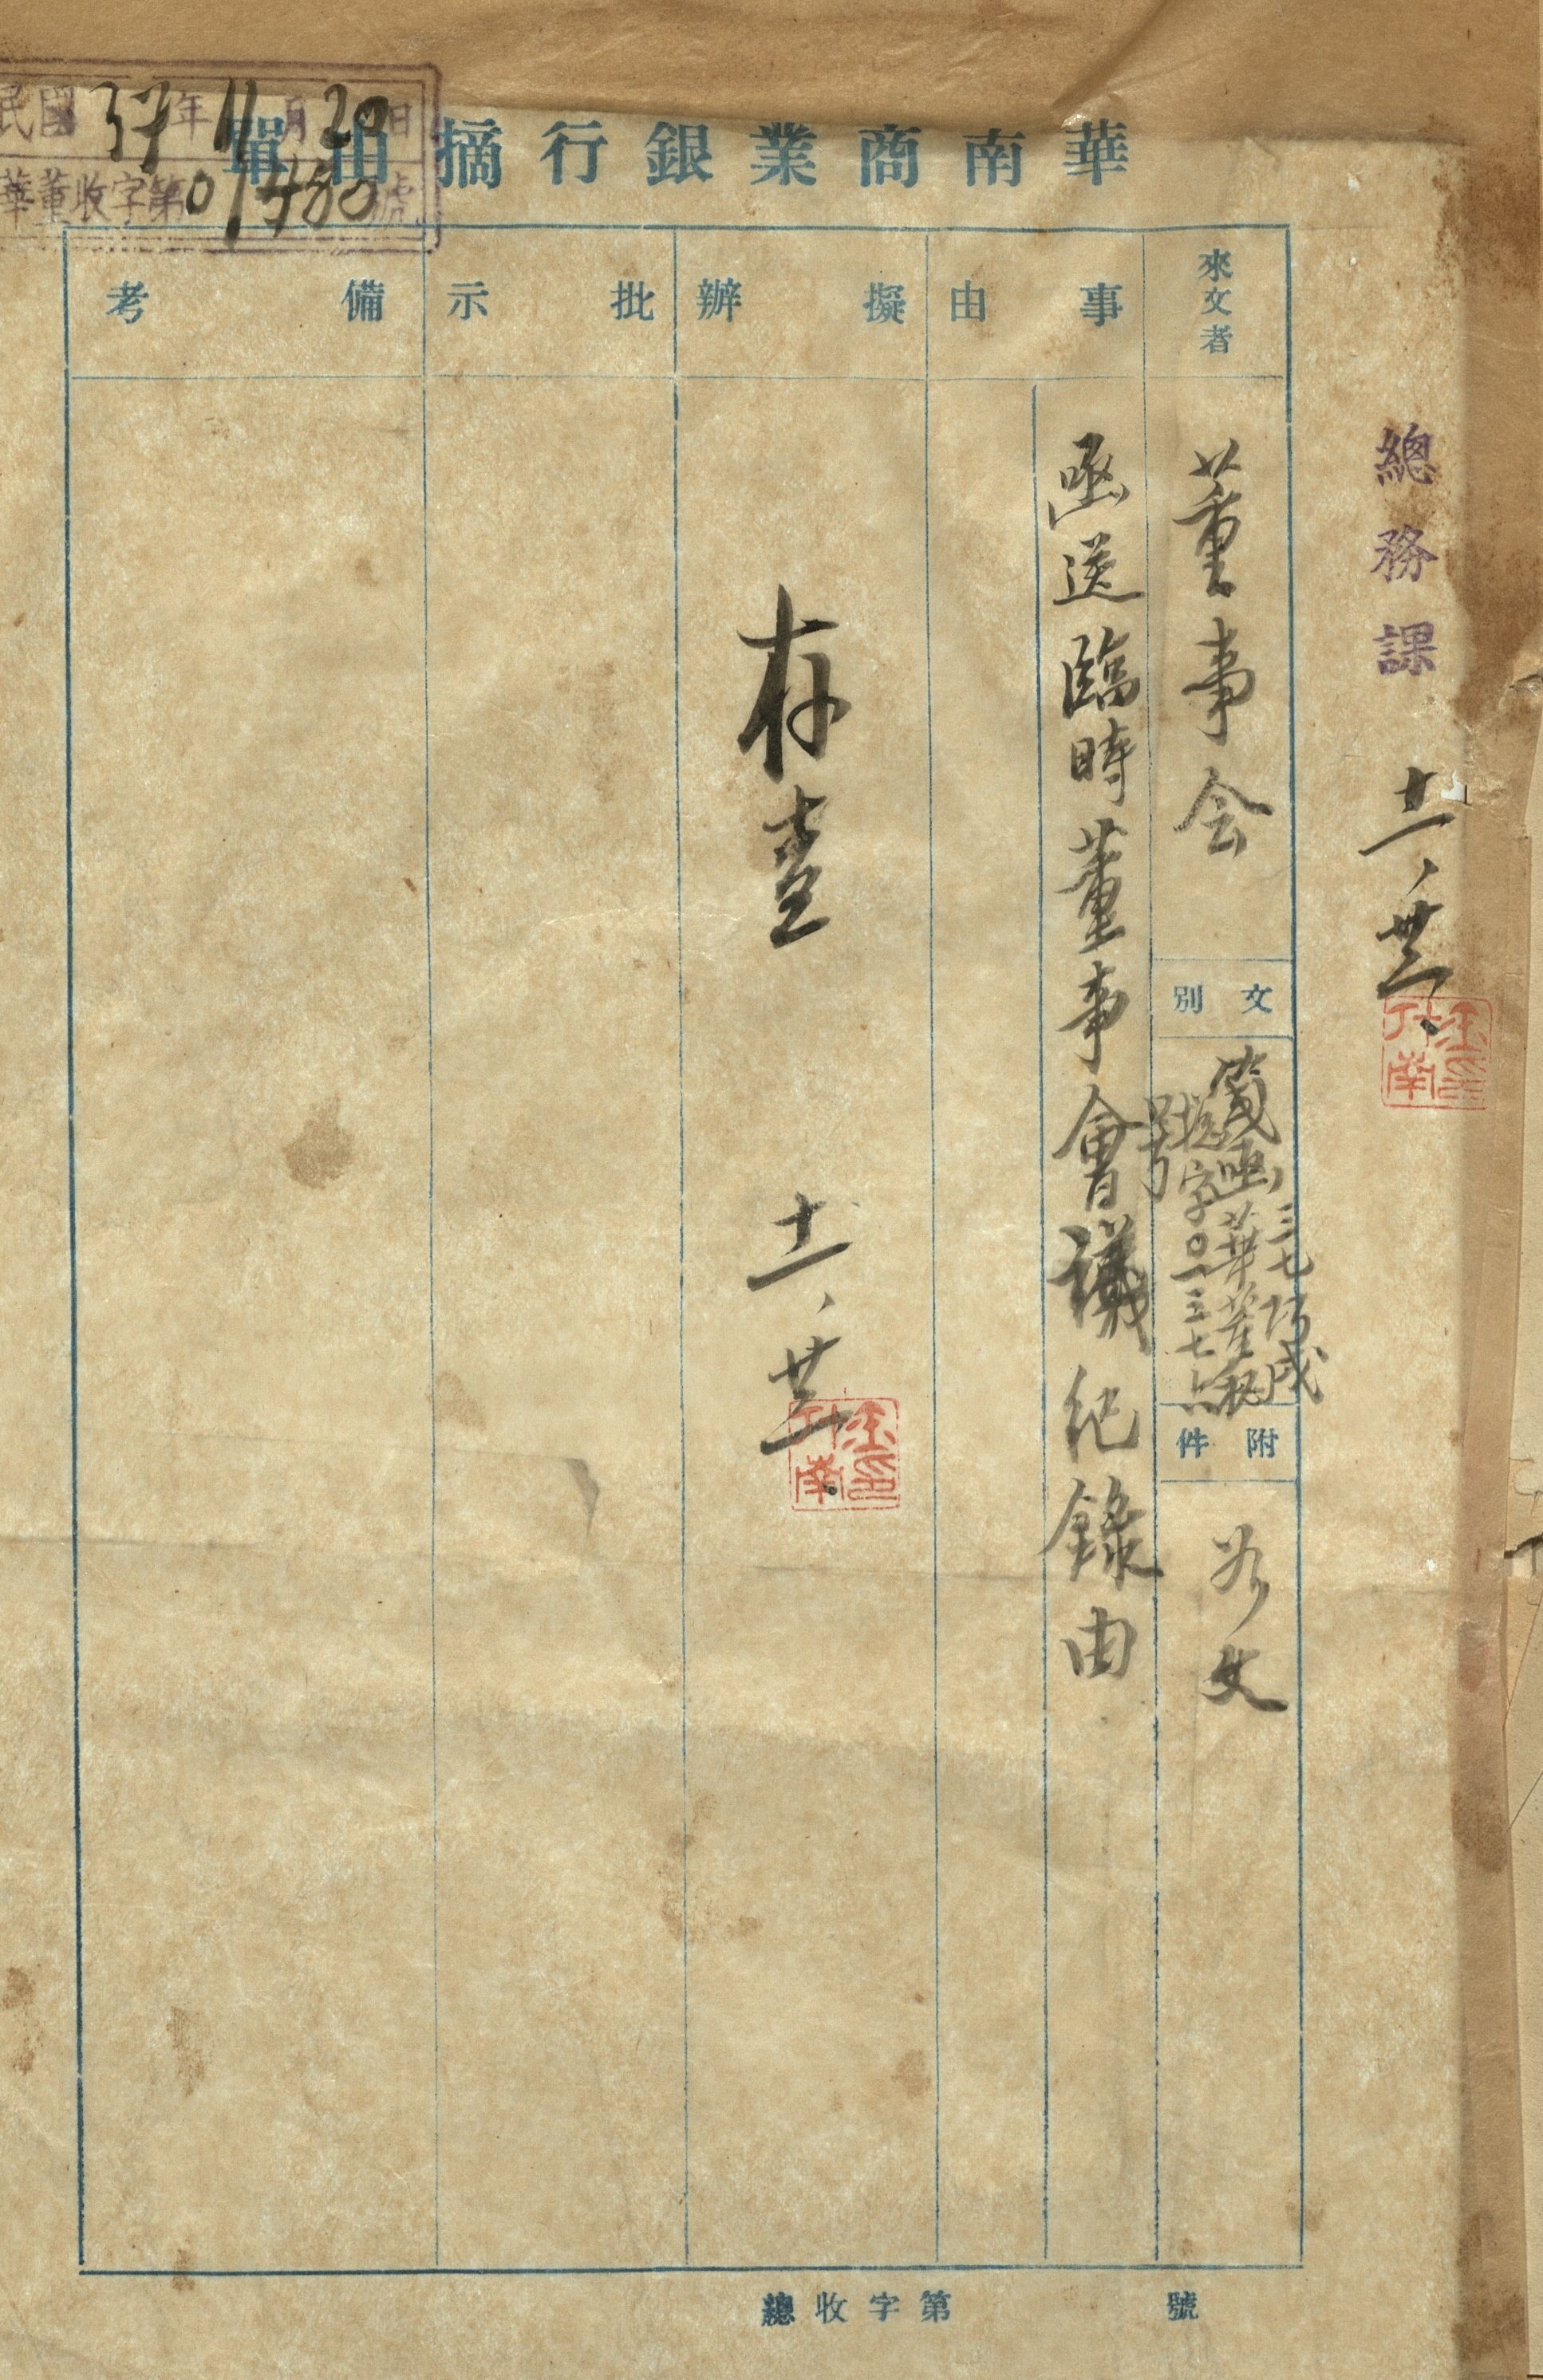 華南商業銀行摘由單
民國37年11月20日
華董收字第01480號
總務課
十一、廿三
來文者
董事会
文別
箋函
三七
華董秘
總字〇一三七六
號
附件
如文
事由
函送臨時董事會議紀錄由
擬辦
存查
十一、廿三
批示
備考
總收字第 號